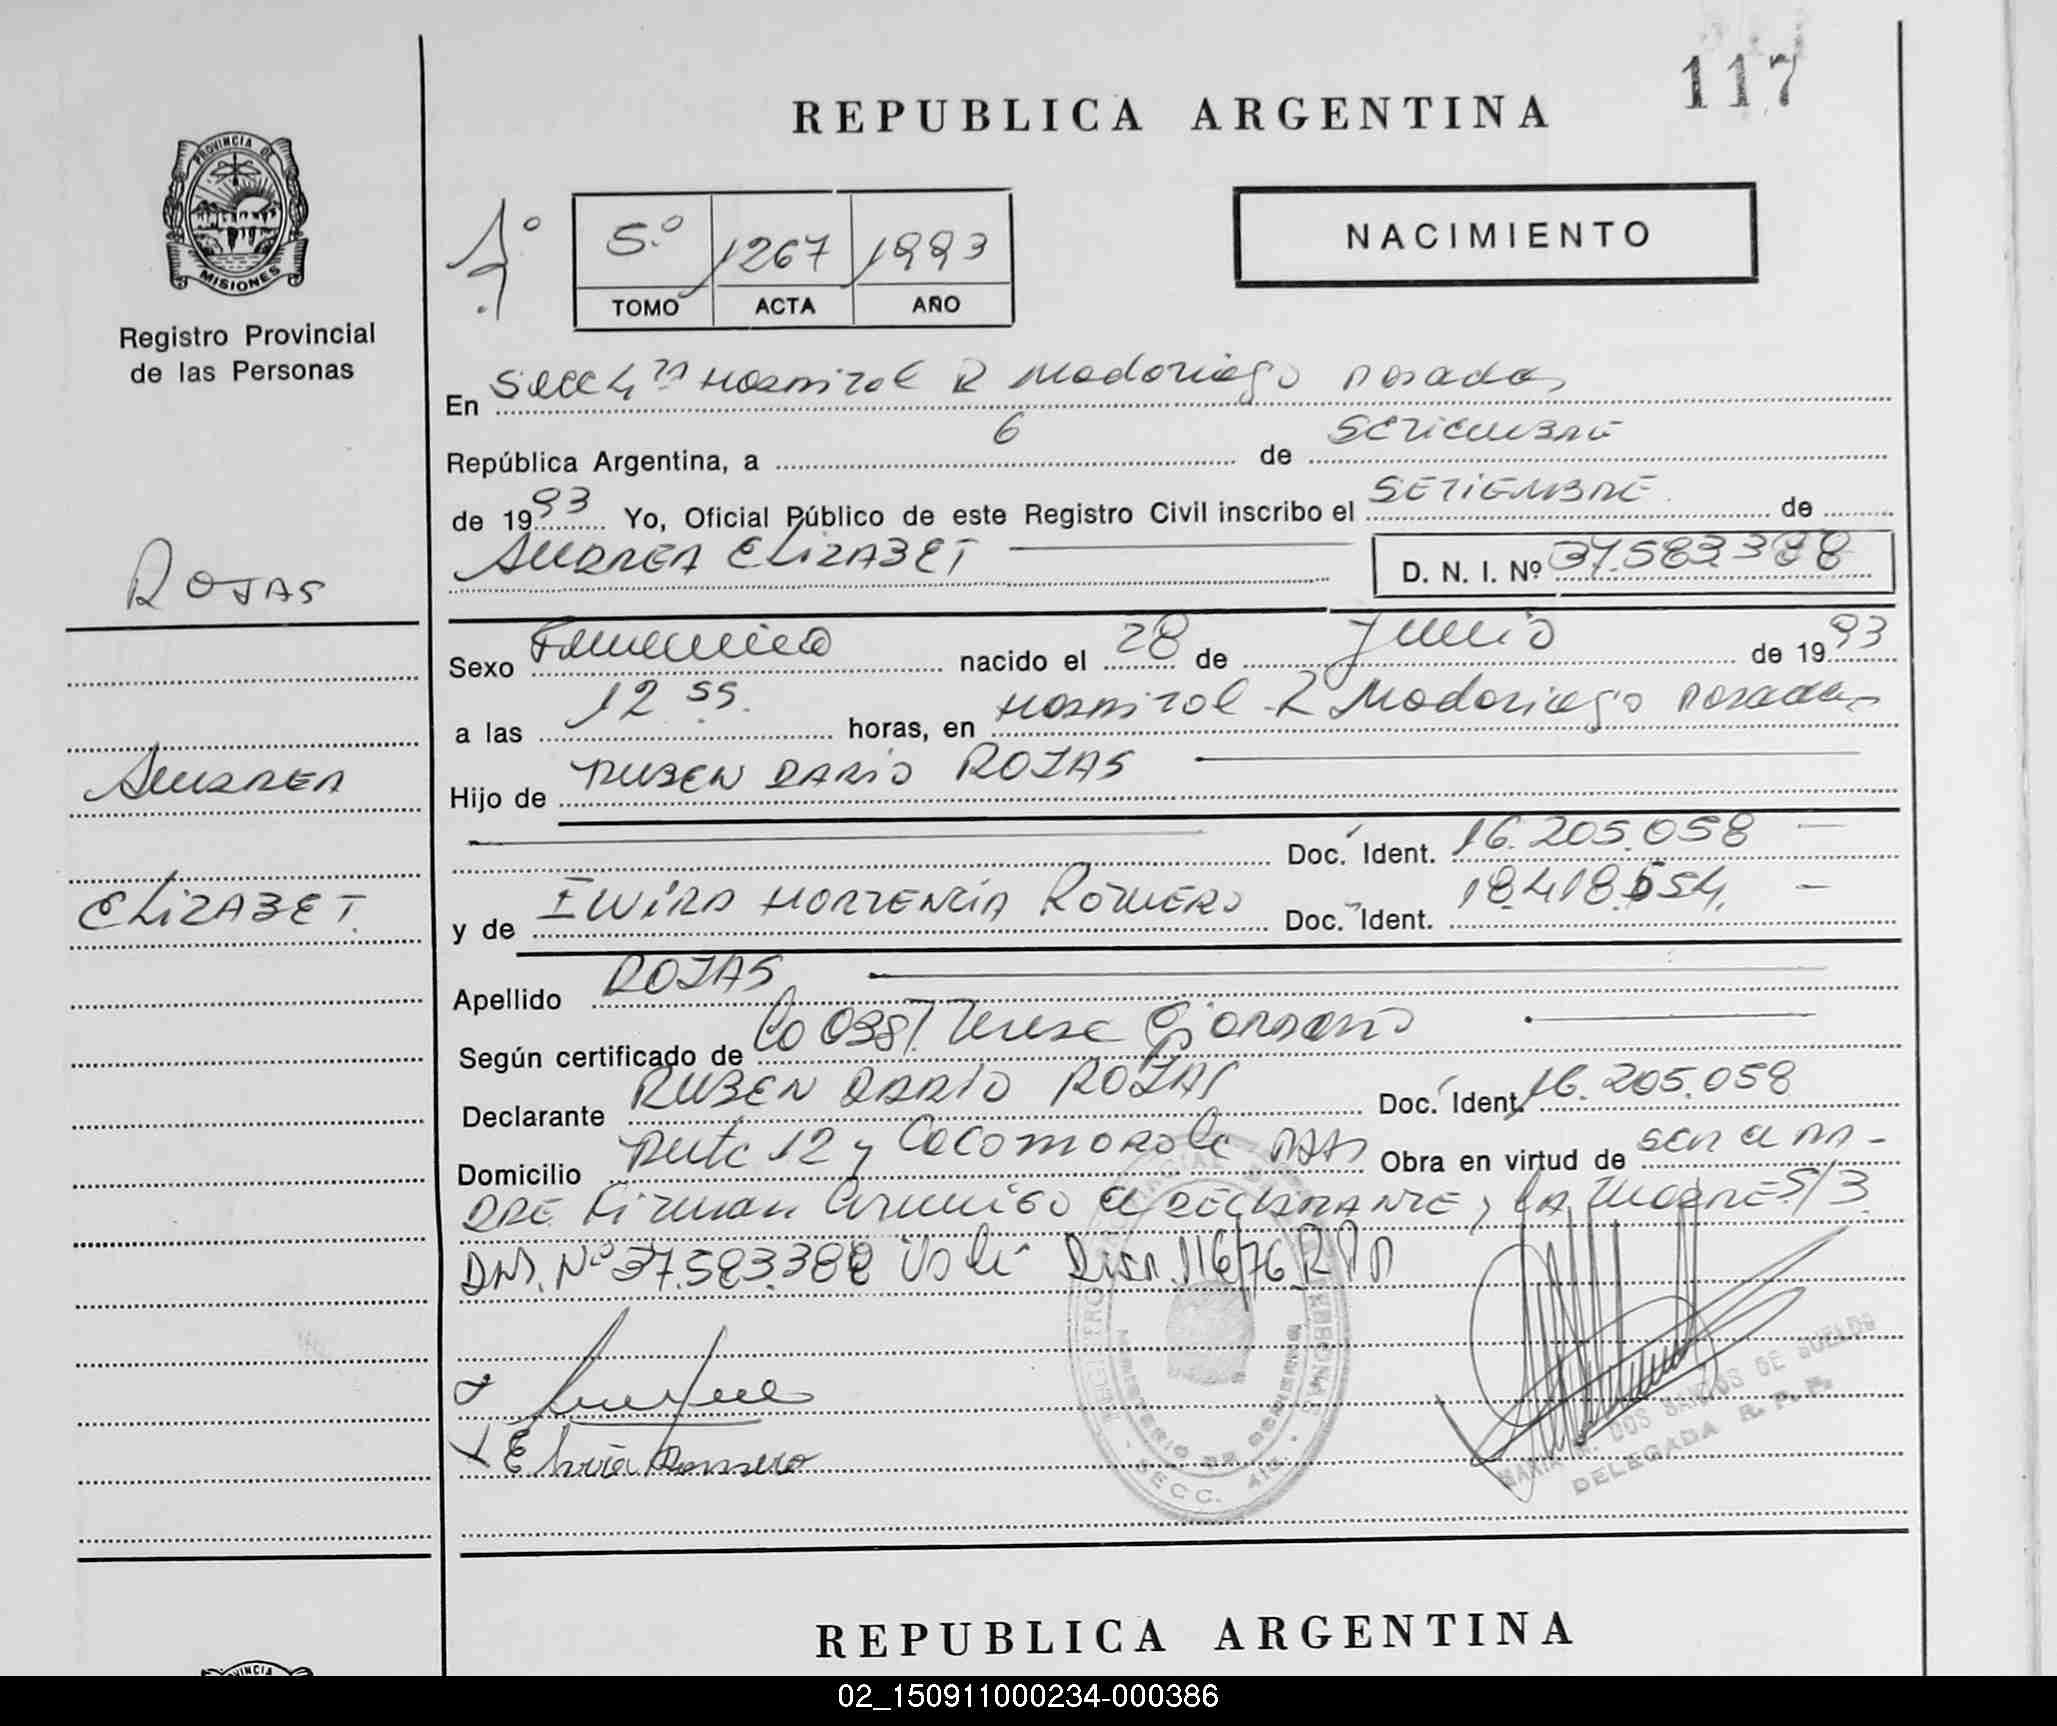 117
REPUBLICA ARGENTINA
PROVINCIA DE
MISIONES
Registro Provincial
de las Personas
1º
5º 1267 1993
TOMO ACTA AÑO
NACIMIENTO
En Secc 4ta Hospital R Madariaga Posadas
República Argentina, a 6 de SETIEMBRE
de 1993 Yo, Oficial Público de este Registro Civil inscribo el SETIEMBRE de
ANDREA ELIZABET D. N. I. Nº 37.583.388
ROJAS
Sexo Femenino nacido el 28 de Junio de 1993
a las 12 55 horas, en Hospital R Madariaga Posadas
ANDREA
Hijo de RUBEN DARIO ROJAS
Doc. Ident. 16.205.058
ELIZABET.
y de ELVIRA HORTENCIA ROMERO Doc. Ident. 18.418.554
Apellido ROJAS
Según certificado de Teresa Giordano
Declarante RUBEN DARIO ROJAS Doc. Ident. 16.205.058
Domicilio Ruta 12 y Cocomarola Obra en virtud de ser el PA-
DRE Firman Conmigo el DECLARANTE y LA MADRE S/3
DNI. Nº 37.583.388 Vale Disp. 116/76 RPP
Elvira Romero
SECC. 4ta.
MINISTERIO DE GOBIERNO
MARIA DOS SANTOS DE SUELDO
DELEGADA R. P. P.
REPUBLICA ARGENTINA
02_150911000234-000386